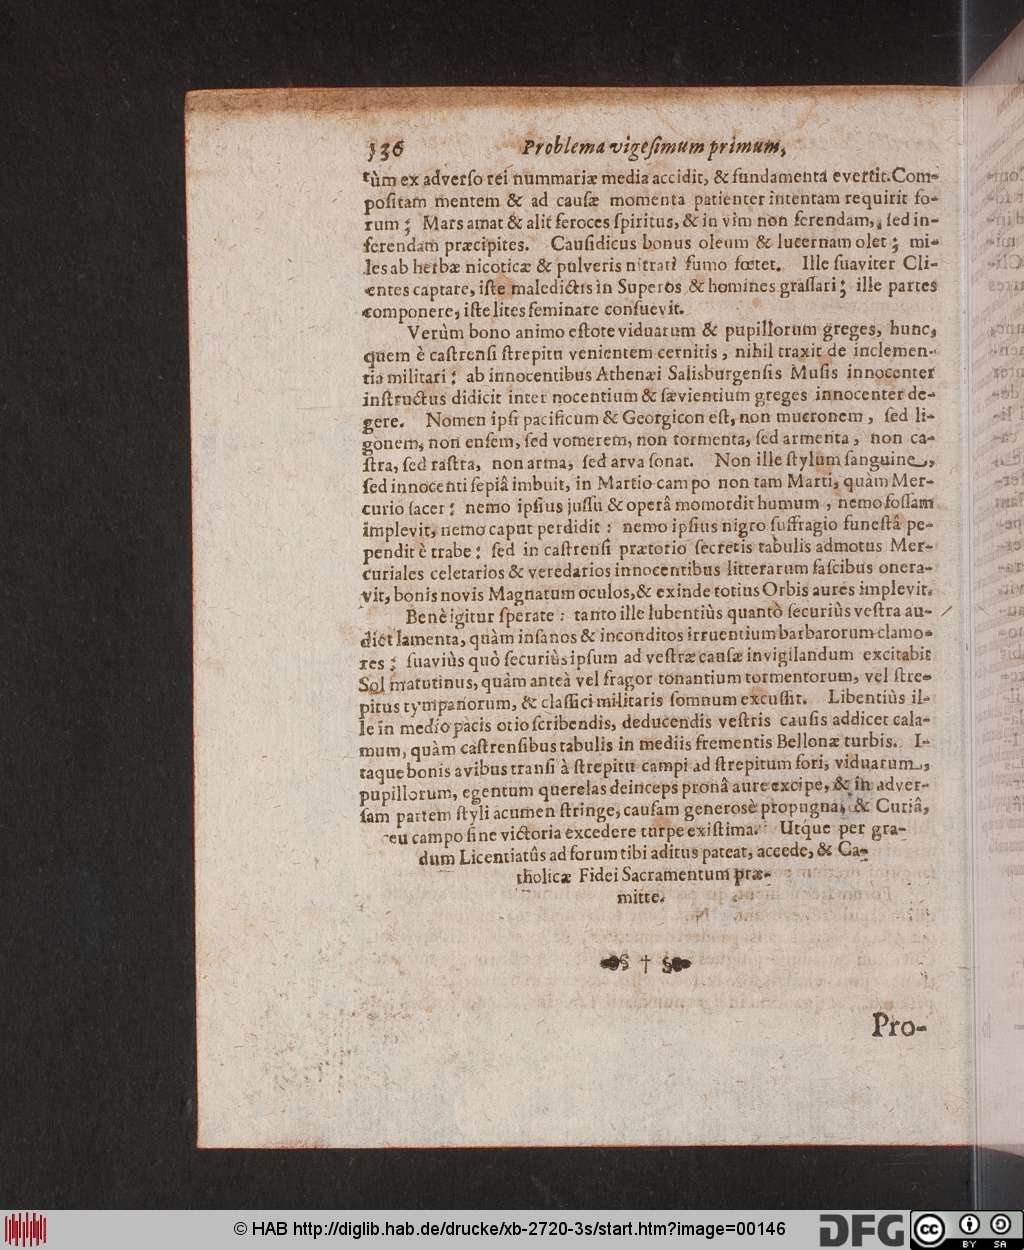 136 Problema vigeſimum primum,
tùm ex adverſo rei nummariæ media accidit, & fundamenta evertit. Com-
poſitam mentem & ad cauſæ momenta patienter intentam requirit fo-
rum; Mars amat & alit feroces ſpiritus, & in vim non ferendam, ſed in-
ferendam præcipites. Cauſidicus bonus oleum & lucernam olet; mi-
les ab herbæ nicoticæ & pulveris nitrati fumo fœtet. Ille ſuaviter Cli-
entes captare, iſte maledictis in Superos & homines graſſari; ille partes
componere, iſte lites ſeminare conſuevit.
Verùm bono animo eſtote viduarum & pupillorum greges, hunc,
quem è caſtrenſi ſtrepitu venientem cernitis, nihil traxit de inclemen-
tia militari: ab innocentibus Athenæi Salisburgenſis Muſis innocenter
inſtructus didicit inter nocentium & ſævientium greges innocenter de-
gere. Nomen ipſi pacificum & Georgicon eſt, non mucronem, ſed li-
gonem, non enſem, ſed vomerem, non tormenta, ſed armenta, non ca-
ſtra, ſed raſtra, non arma, ſed arva ſonat. Non ille ſtylum ſanguine,
ſed innocenti ſepiâ imbuit, in Martio campo non tam Marti, quàm Mer-
curio ſacer: nemo ipſius juſſu & operâ momordit humum, nemo foſſam
implevit, nemo caput perdidit: nemo ipſius nigro ſuffragio funeſtâ pe-
pendit è trabe: ſed in caſtrenſi prætorio ſecretis tabulis admotus Mer-
curiales celetarios & veredarios innocentibus litterarum faſcibus onera-
vit, bonis novis Magnatum oculos, & exinde totius Orbis aures implevit.
Benè igitur ſperate: tanto ille lubentiùs quantò ſecuriùs veſtra au-
diet lamenta, quàm inſanos & inconditos irruentium barbarorum clamo-
res; ſuaviùs quò ſecuriùs ipſum ad veſtræ cauſæ invigilandum excitabit
Sol matutinus, quàm anteà vel fragor tonantium tormentorum, vel ſtre-
pitus tympanorum, & claſſici militaris ſomnum excuſſit. Libentiùs il-
le in medio pacis otio ſcribendis, deducendis veſtris cauſis addicet cala-
mum, quàm caſtrenſibus tabulis in mediis frementis Bellonæ turbis. I-
taque bonis avibus tranſi à ſtrepitu campi ad ſtrepitum fori, viduarum,
pupillorum, egentum querelas deinceps pronâ aure excipe, & in adver-
ſam partem ſtyli acumen ſtringe, cauſam generosè propugna, & Curiâ,
ceu campo ſine victoria excedere turpe exiſtima. Utque per gra-
dum Licentiatûs ad forum tibi aditus pateat, accede, & Ca-
tholicæ Fidei Sacramentum præ-
mitte.
§ † §
Pro-
© HAB http://diglib.hab.de/drucke/xb-2720-3s/start.htm?image=00146
DFG
cc BY SA